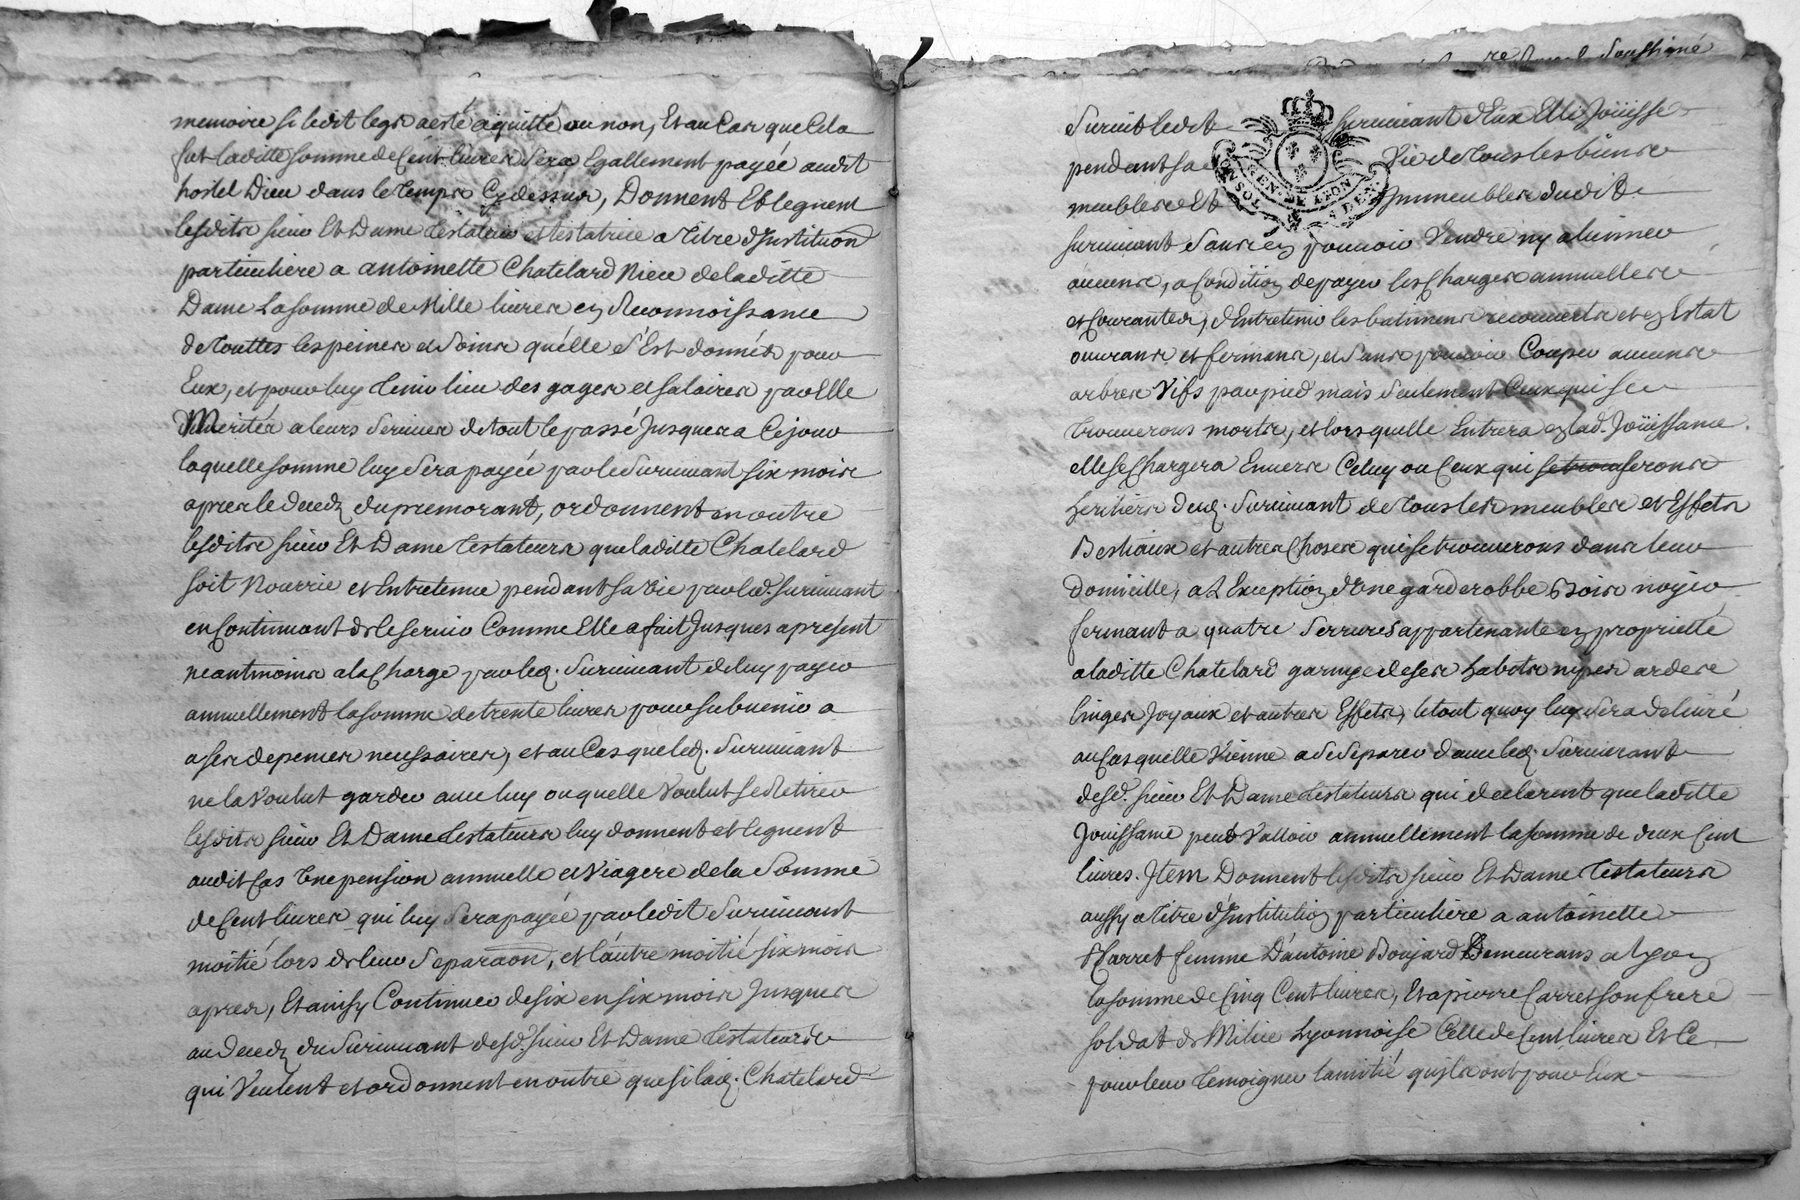 memoire si ledit legs a esté aquitté ou non, Et au Cas que Cela
fut laditte somme de Cent livres sera Egallement payée audit
hostel Dieu dans le temps Cy dessus, Donnent Et leguent
lesdits sieur Et Dame testateur et testatrice a titre d'Institution
particuliere a antoinette Chatelard Niece de laditte
Dame La somme de Mille livres en Reconnoissance
de touttes les peines et soins qu'elle s'Est donnés pour
Eux, et pour luy tenir lieu des gages et salaires par Elle
Meritér a leurs service de tout le passé Jusques a Ce jour
laquelle somme luy sera payée par le survivant six mois
apres le decedz du premorant, ordonnent en outre
lesdits sieur Et Dame testateurs que laditte Chatelard
soit Nourrie et Entretenue pendant sa vie par led. survivant
en Continuant de le servir Comme Elle a fait Jusques a present
neantmoins a la Charge par led. survivant de luy payer
annuellement la somme de trente livres pour subvenir a
a ses depences necessaires, et au Cas que led. survivant
ne la voulut garder avec luy ou quelle voulut se Retirer
lesdits sieur Et Dame testateurs luy donnent et leguent
audit Cas Une pension annuelle et Viagere de la Somme
de Cent livres qui luy sera payée par ledit survivant
moitié lors de leur separaon, et l'autre moitié six mois
apres, Et ainsy Continuer de six en six mois Jusques
au decedz du survivant desd. sieur Et Dame testateurs
qui Veulent et ordonnent en outre que si lad. Chatelard
Soussigné
survit ledit survivant d'Eux Elle Joüisse
pendant sa Vie de tous les biens
meubles Et Immeubles dudit
survivant sans en pouvoir Vendre ny aliener
aucuns, a Condition de payer les Charges annuelles
et Courantes, d'Entretenir les batimens recouverts et en Estat
ouvrans et fermans, et sans pouvoir Couper aucuns
arbres Vifs par pied mais seulement Ceux qui se
trouverons morts, et lors quelle Entrera en lad. Joüissance
elle se Chargera Envers Celuy ou Ceux qui se trouv serons
heritiers dud. survivant de tous les meubles et Effets
Bestiaux et autres Choses qui se trouverons dans leur
domicille, a L'Exception d'Une garderobbe Bois noyer
fermant a quatre serrures appartenante en proprietté
a laditte Chatelard garnye de ses habits nipes ardes
linges Joyaux et autres Effets, le tout quoy luy sera delivré
au Cas quelle Vienne a se separer d'avec led. survivant
desd. sieur Et Dame testateurs qui declarent que laditte
Jouissance peut Valloir annuellement la somme de deux Cent
livres. Item Donnent lesdits sieur Et Dame testateurs
aussy a titre d'Institution particuliere a antoinette
Carret femme D'antoine Boujard Demeurans a Lyon
la somme de Cinq Cent livres, Et a pierre Carret son frere
soldat de Milice Lyonnoise Celle de Cent livres Et Ce
pour leur temoigner l'amitié qu'ils ont pour Eux